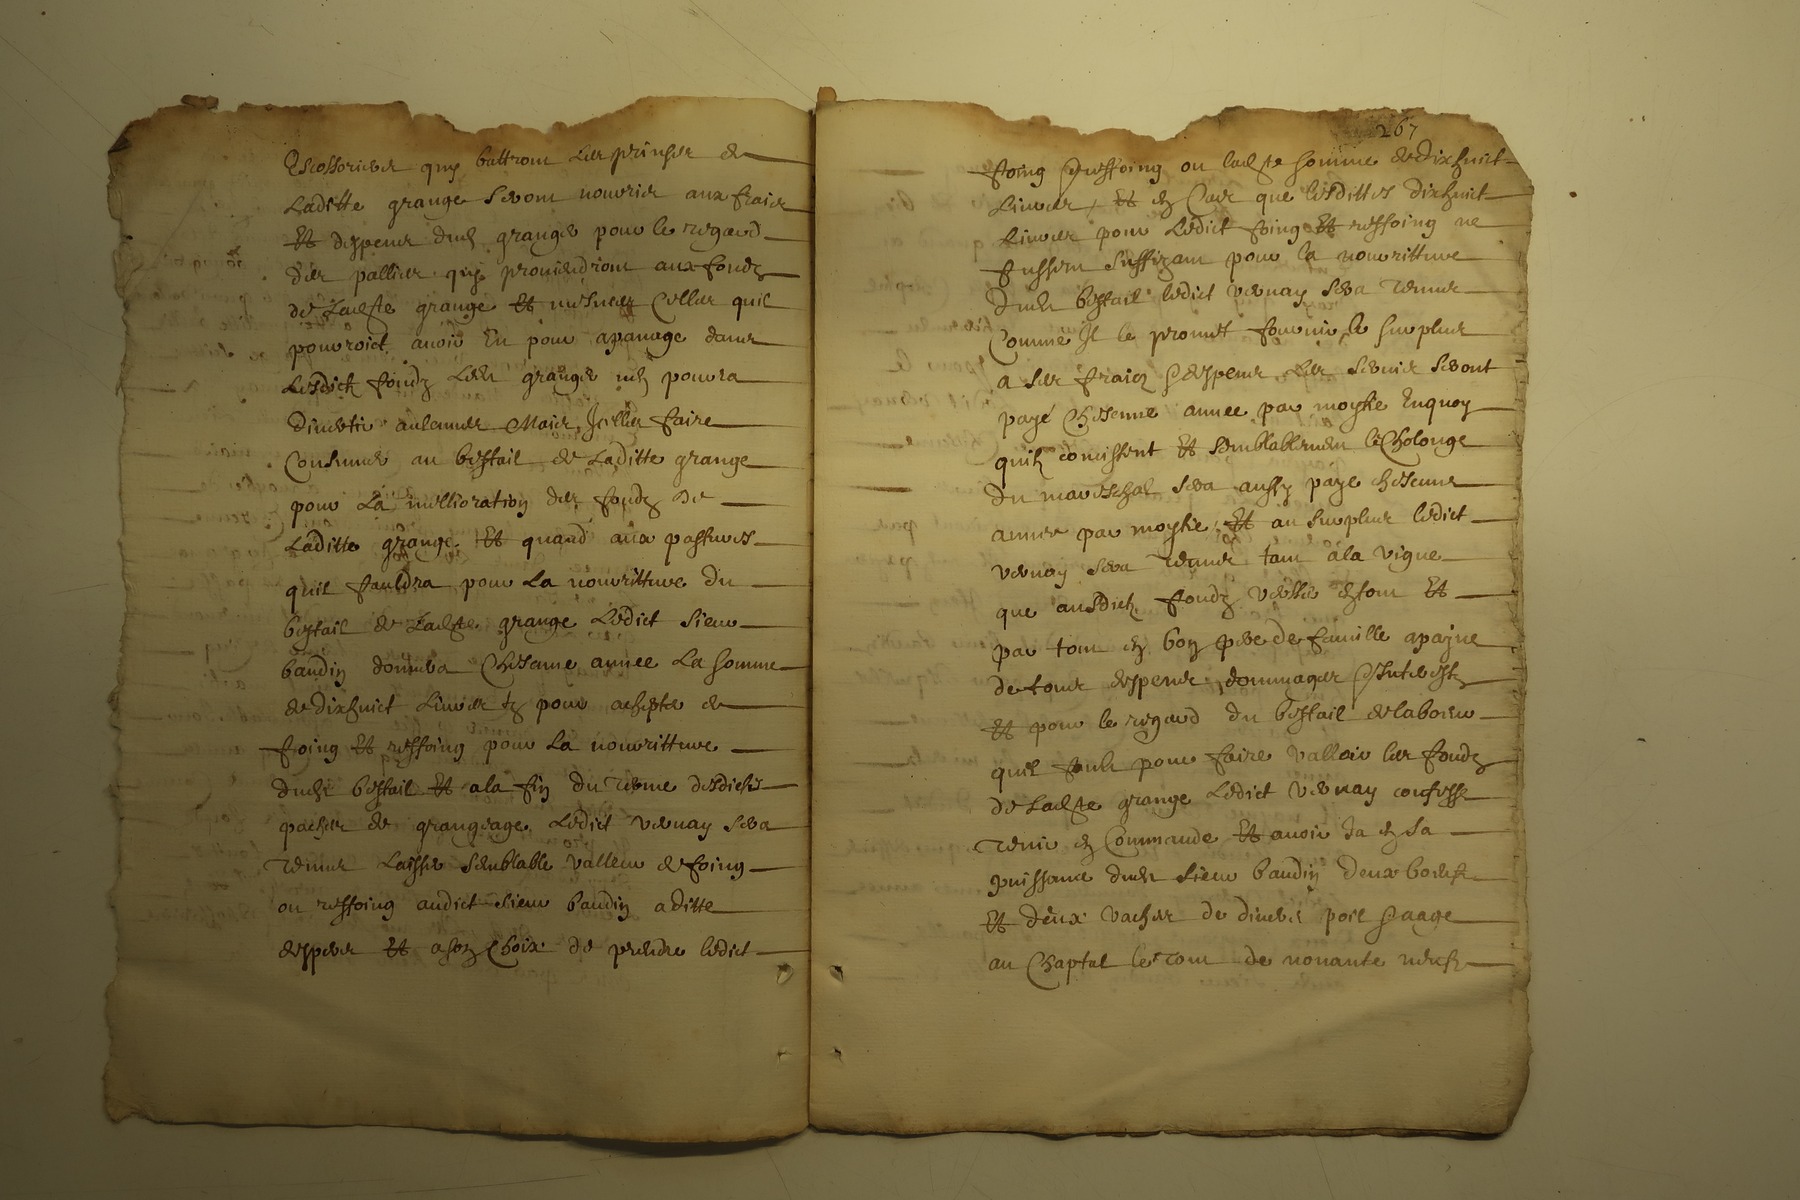 Escossorieurs quy battront les prinses de
Laditte grange seront nourris aux fraix
Et despens dudt granger pour le regard
des pallies quy proviendront aux fondz
de Ladte grange Et mesmes Celles quil
pourroict avoir En pour apanage dans
Lesdictz fondz Ledt granger nen pourra
divertir aulcunes Mais Icelles faire
Consumer au bestail de Laditte grange
pour La mellioration des fondz de
Laditte grange Et quand aux pastures
quil fauldra pour La nourritture du
bestail de Ladte grange Ledict Sieur
baudin donnera Chescune annee La somme
de dixhuict Livres tz pour achepter de
foing Et reffoing pour La nourritture
dudt bestail Et ala fin du terme desdicts
paches de grangeage Ledict vernay sera
tenu Laisser semblable valleur de foing
ou reffoing audict Sieur baudin aditte
despers Et ason Choix de prendre ledict
267
foing & reffoing ou ladte somme de dixhuict
Livres, Et en Cas que lesdittes dixhuict
Livres pour Ledict foing Et reffoing ne
fussent suffizant pour la nourritture
dudt bestail ledict vernay sera tenu
Comme Il le promet fournir le surplus
a ses fraiz & despens Les servis seront
payé Chescune annee par moytie Enquoy
quilz concistent Et semblablement le Cholonge
du mareschal sera aussy payé chescune
annee par moytie Et au surplus ledict
vernay sera tenu tant ala vigne
que ausdictz fondz verser en tout Et
par tout en bon pere de famille apayne
de tous despens dommages & Interestz
Et pour le regard du bestail de labeur
quil fault pour faire valloir les fondz
de Ladte grange Ledict vernay confesse
tenir en Commande Et avoir Ja en sa
puissance dudt Sieur baudin deux boeufz
Et deux vaches de divers poil & aage
au Chaptal le tout de nonante neufz